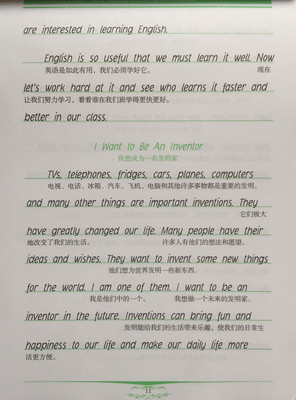 are interested in learning English.
English is so useful that we must learn it well. Now
英语是如此有用，我们必须学好它。 现在
let's work hard at it and see who learns it faster and
让我们努力学习，看看谁在我们班学得更快更好。
better in our class.
I Want to Be An Inventor
我想成为一名发明家
TVs, telephones, fridges, cars, planes, computers
电视、电话、冰箱、汽车、飞机、电脑和其他许多事物都是重要的发明。
and many other things are important inventions. They
它们极大
have greatly changed our life. Many people have their
地改变了我们的生活。 许多人有他们的想法和愿望。
ideas and wishes. They want to invent some new things
他们想为世界发明一些新东西。
for the world. I am one of them. I want to be an
我是他们中的一个。 我想做一个未来的发明家。
inventor in the future. Inventions can bring fun and
发明能给我们的生活带来乐趣，使我们的日常生
happiness to our life and make our daily life more
活更方便。
11